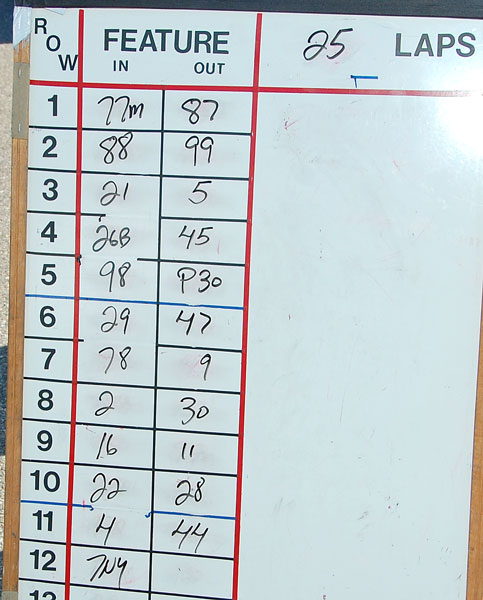 ROW FEATURE 25 LAPS
IN OUT
1 77m 87
2 88 99
3 21 5
4 26B 45
5 98 P30
6 29 47
7 78 9
8 2 30
9 16 11
10 22 28
11 4 44
12 7NY
13